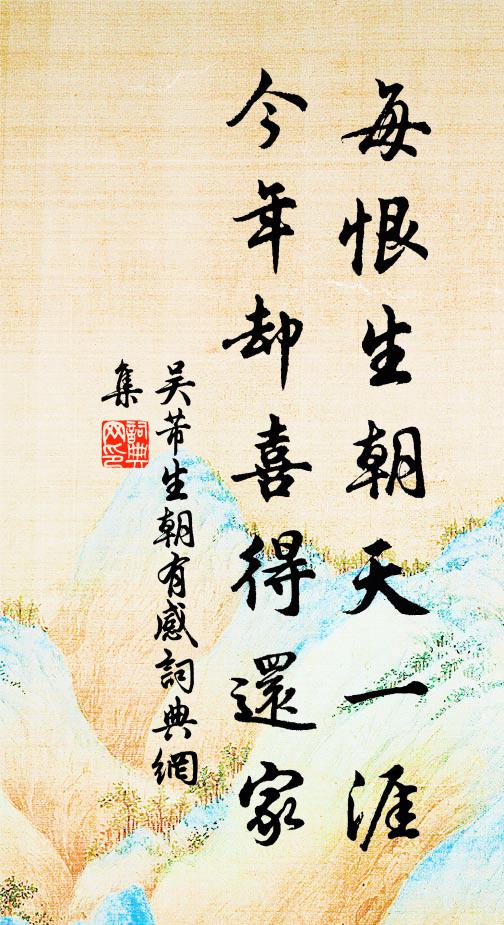 每恨生朝天一涯
今年却喜得還家
吴芾生朝有感詞典網
集
詞典网印